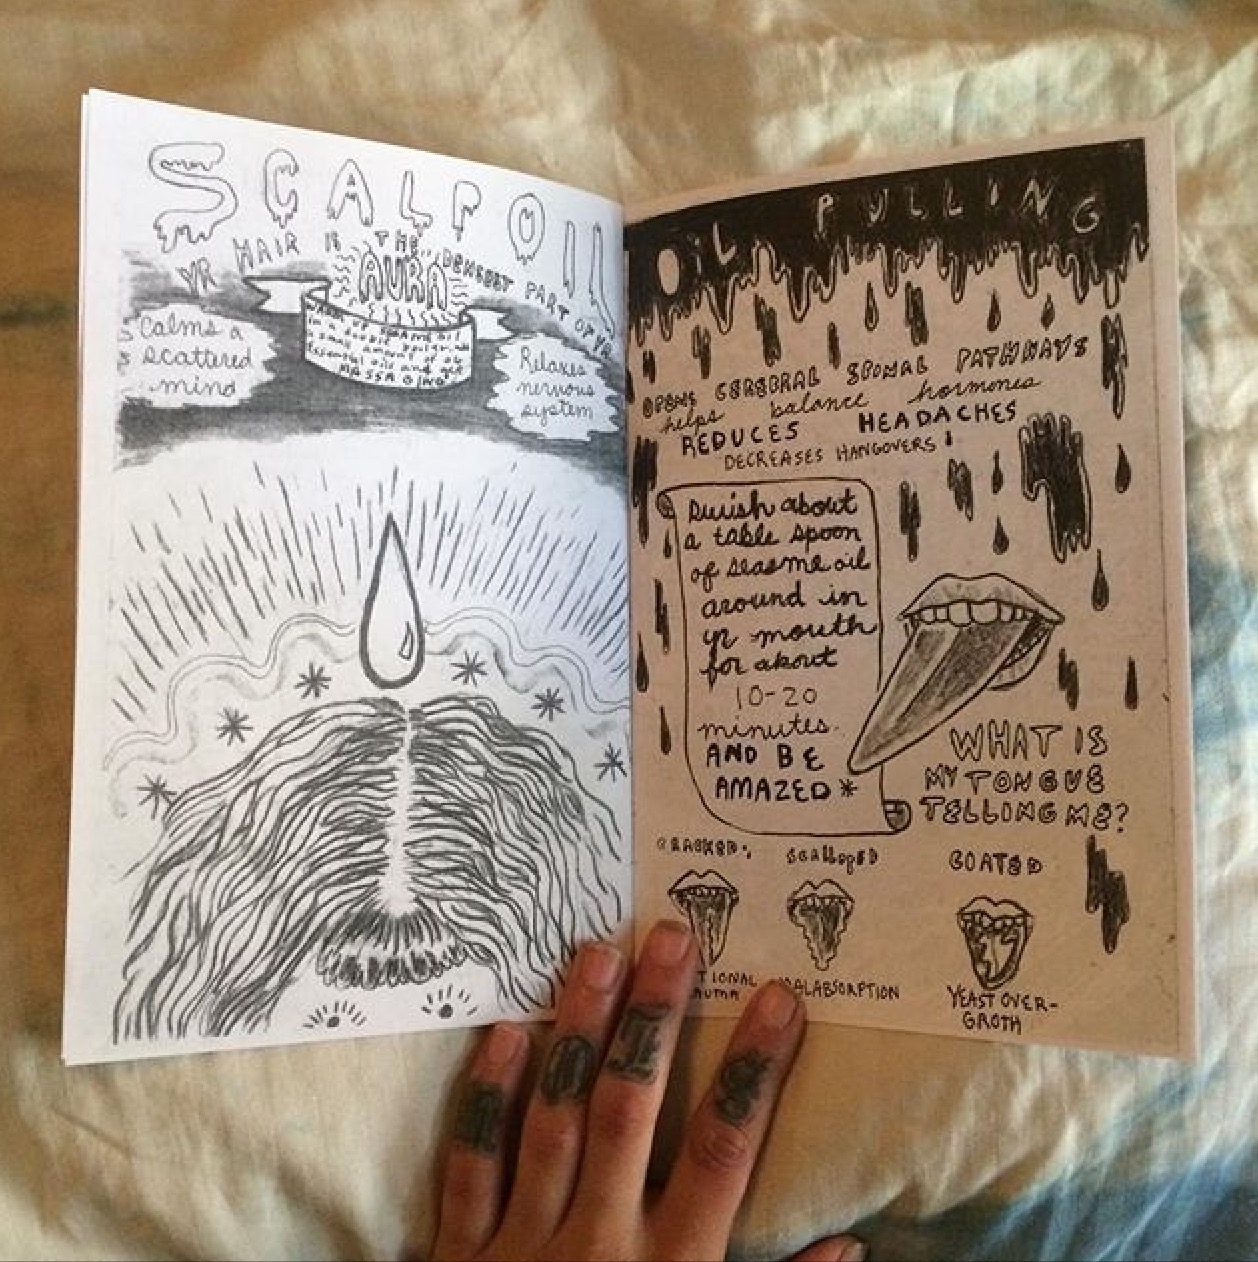 SCALP OIL
YR HAIR IS THE DENSEST PART OF YR
AURA
WARM UP SESAME OIL
in a double boiler, add
small amount of
Essential oils and get
MASSAGING
Calms a
scattered
mind
Relaxes
nervous
system
OIL PULLING
OPENS CEREBRAL SPINAL PATHWAYS
helps balance hormones
REDUCES HEADACHES
DECREASES HANGOVERS!
Swish about
a table spoon
of seasme oil
around in
yr mouth
for about
10-20
minutes.
AND BE
AMAZED*
WHAT IS
MY TONGUE
TELLING ME?
CRACKED:
Scalloped
COATED
TIONAL
AUMA
MALABSORPTION
YEAST OVER-
GROTH